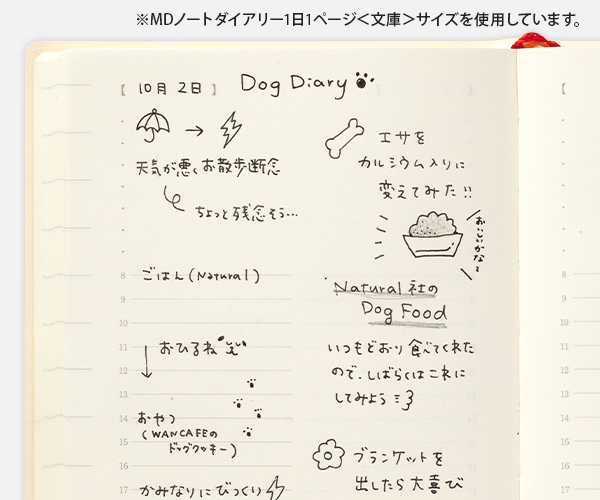 ※MDノートダイアリー1日1ページ＜文庫＞サイズを使用しています。
【 10月 2日 】 Dog Diary
天気が悪くお散歩断念
ちょっと残念そう…
8 ごはん(Natural)
9
10
11 おひるね
12
13
14 おやつ
(WANCAFEの
15 ドッグクッキー)
16
17 かみなりにびっくり
エサを
カルシウム入りに
変えてみた!!
おいしいかな?
Natural社の
Dog Food
いつもどおり食べてくれた
ので、しばらくはこれに
してみよう
ブランケットを
出したら大喜び
【
8
9
10
11
12
13
14
15
16
17